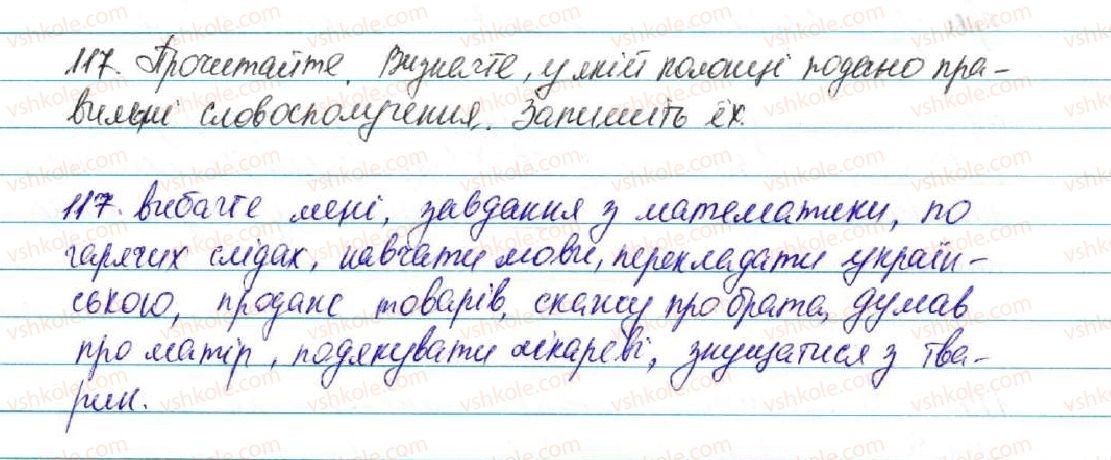 117. Прочитайте. Визначте, у якій колонці подано пра-
вильні словосполучення. Запишіть їх.
117. вибачте мені, завдання з математики, по
гарячих слідах, навчати мови, перекладати україн-
ською, продаж товарів, скажу про брата, думав
про матір, подякувати лікареві, знущатися з тва-
рин.